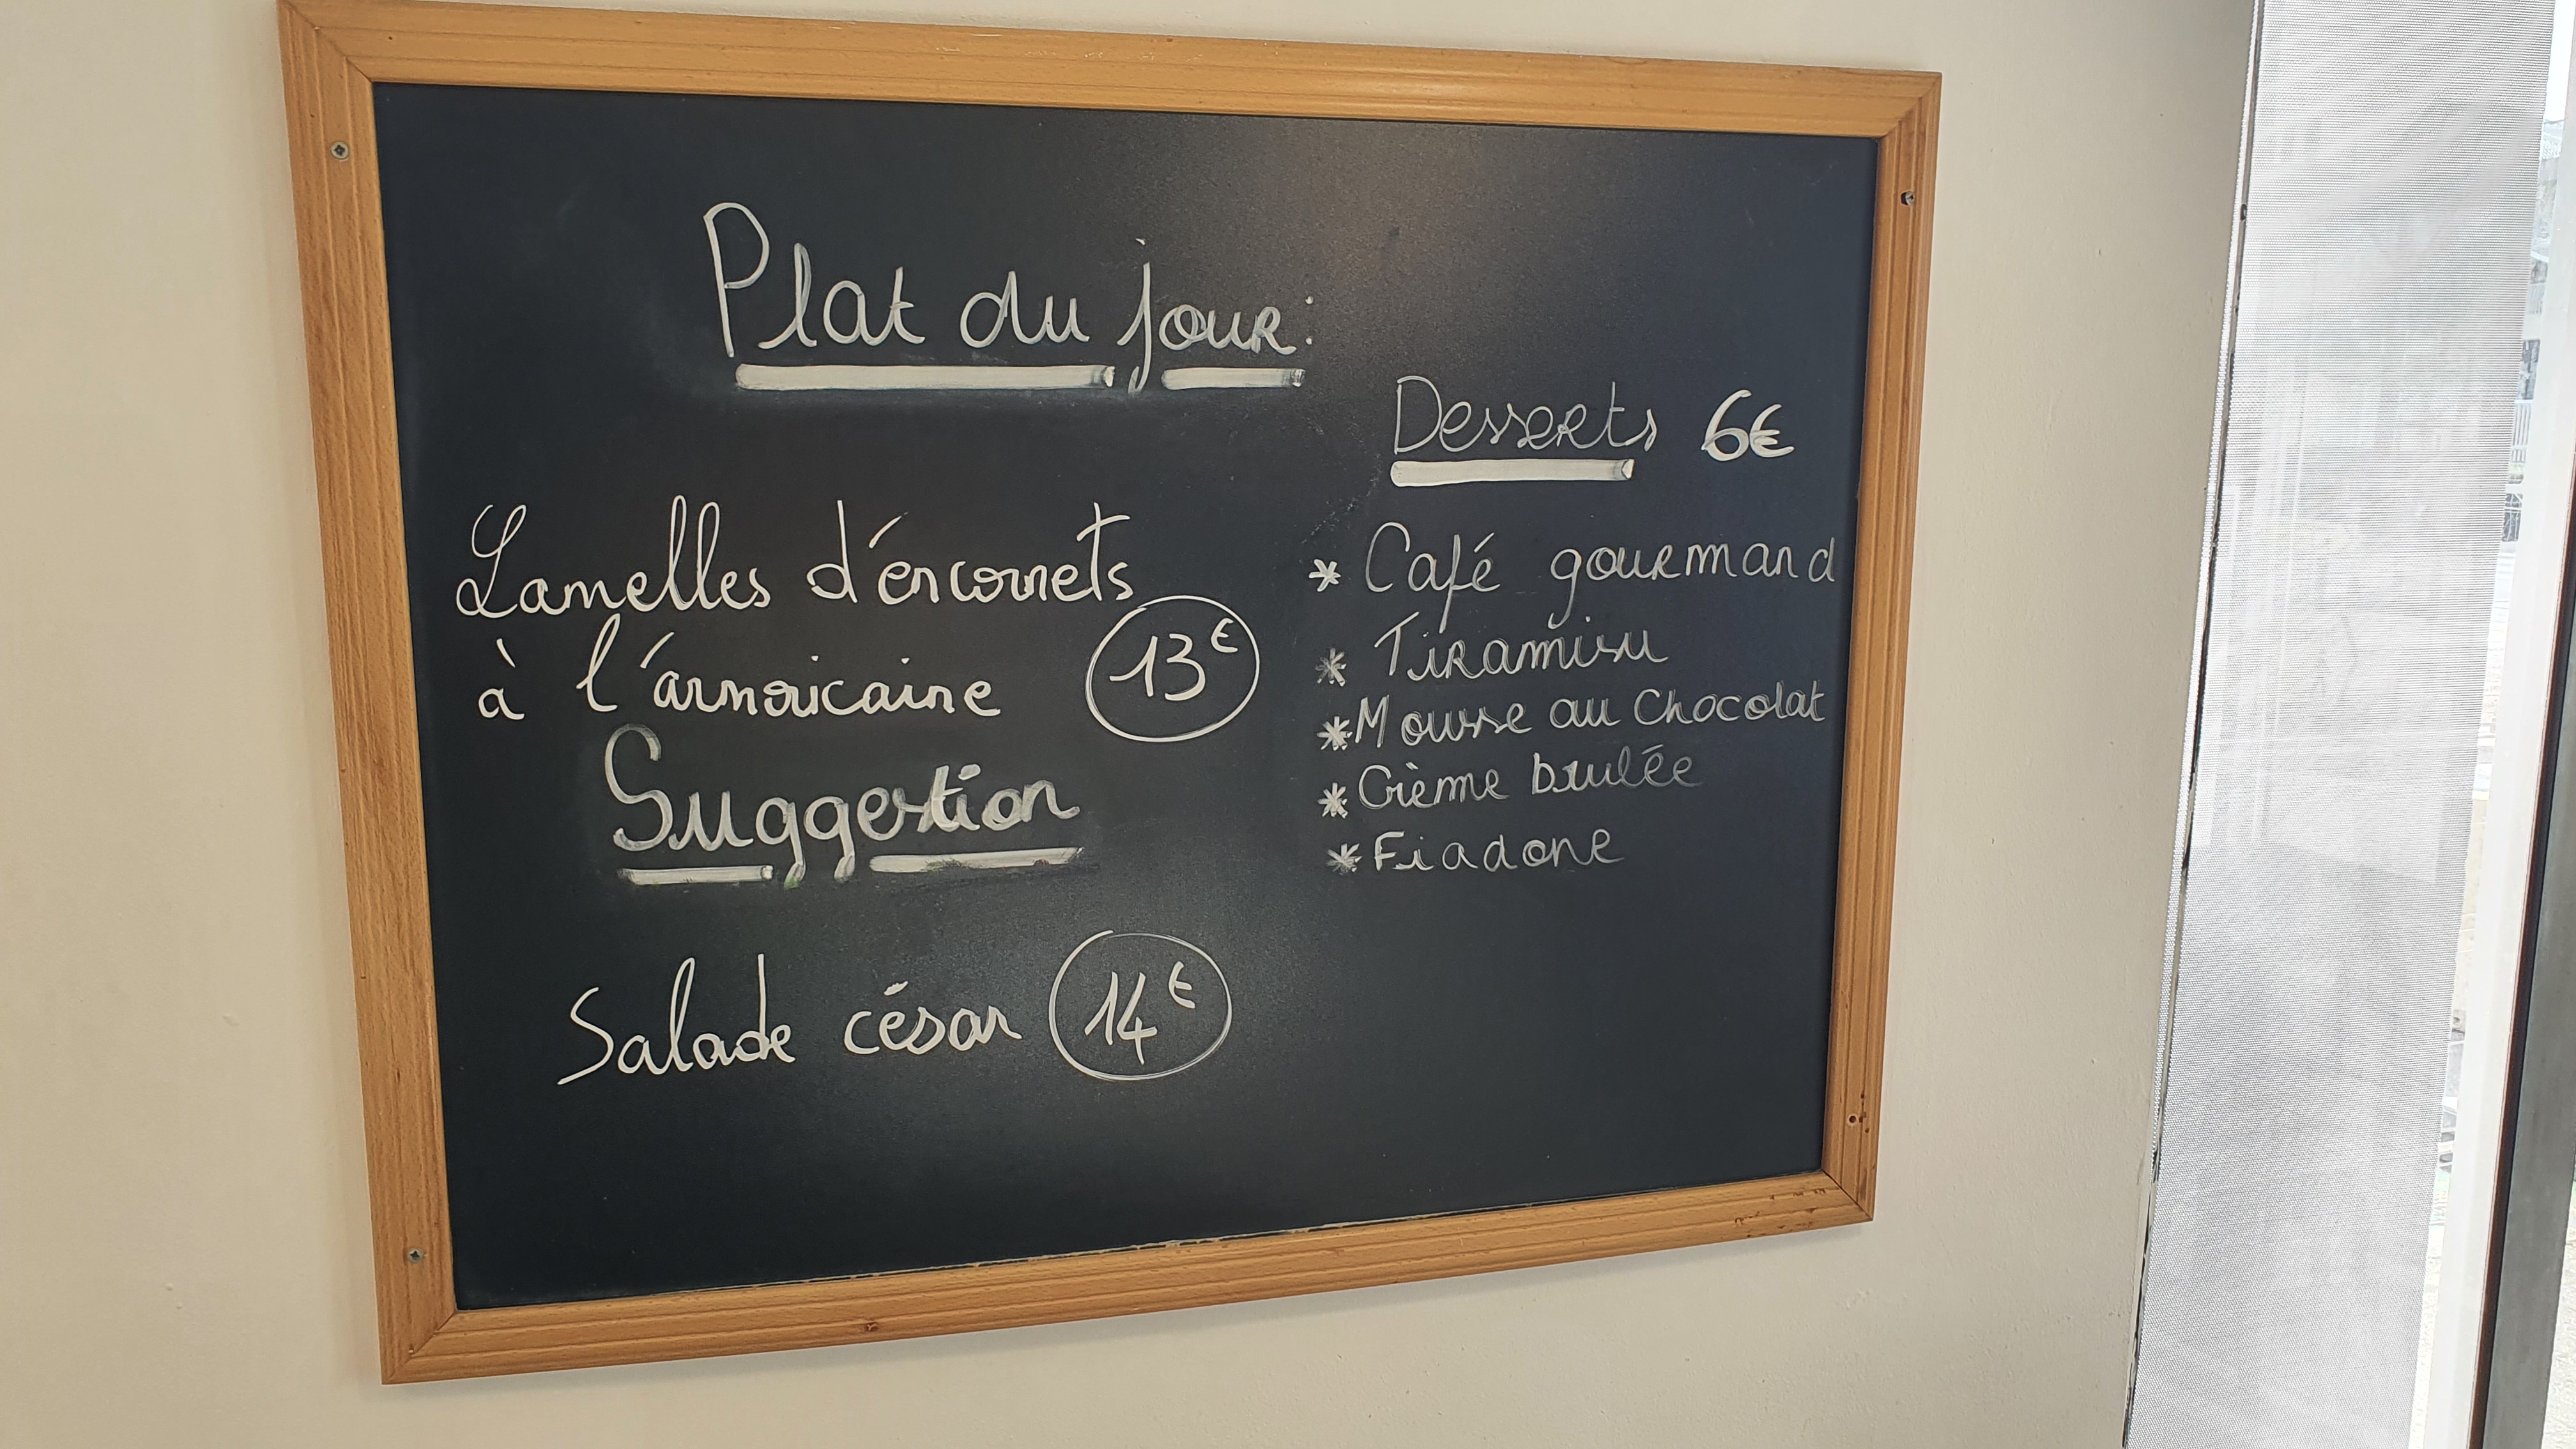 Plat du jour:
Lamelles d'éncornets
à l'ármoricaine 13€
Suggestion
Salade césar 14€
Desserts 6€
* Café gourmand
* Tiramisu
* Mousse au Chocolat
* Crème brulée
* Fiadone